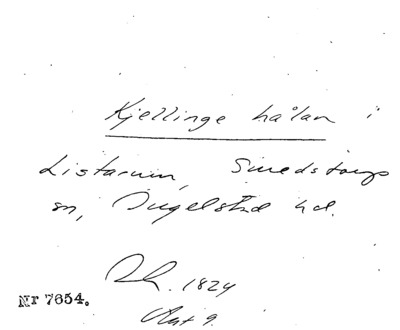 Kjellinge hålan i
Listarum, Smedstorps
sn, Ingelstad hd.
1824
Nr 7654.
9.